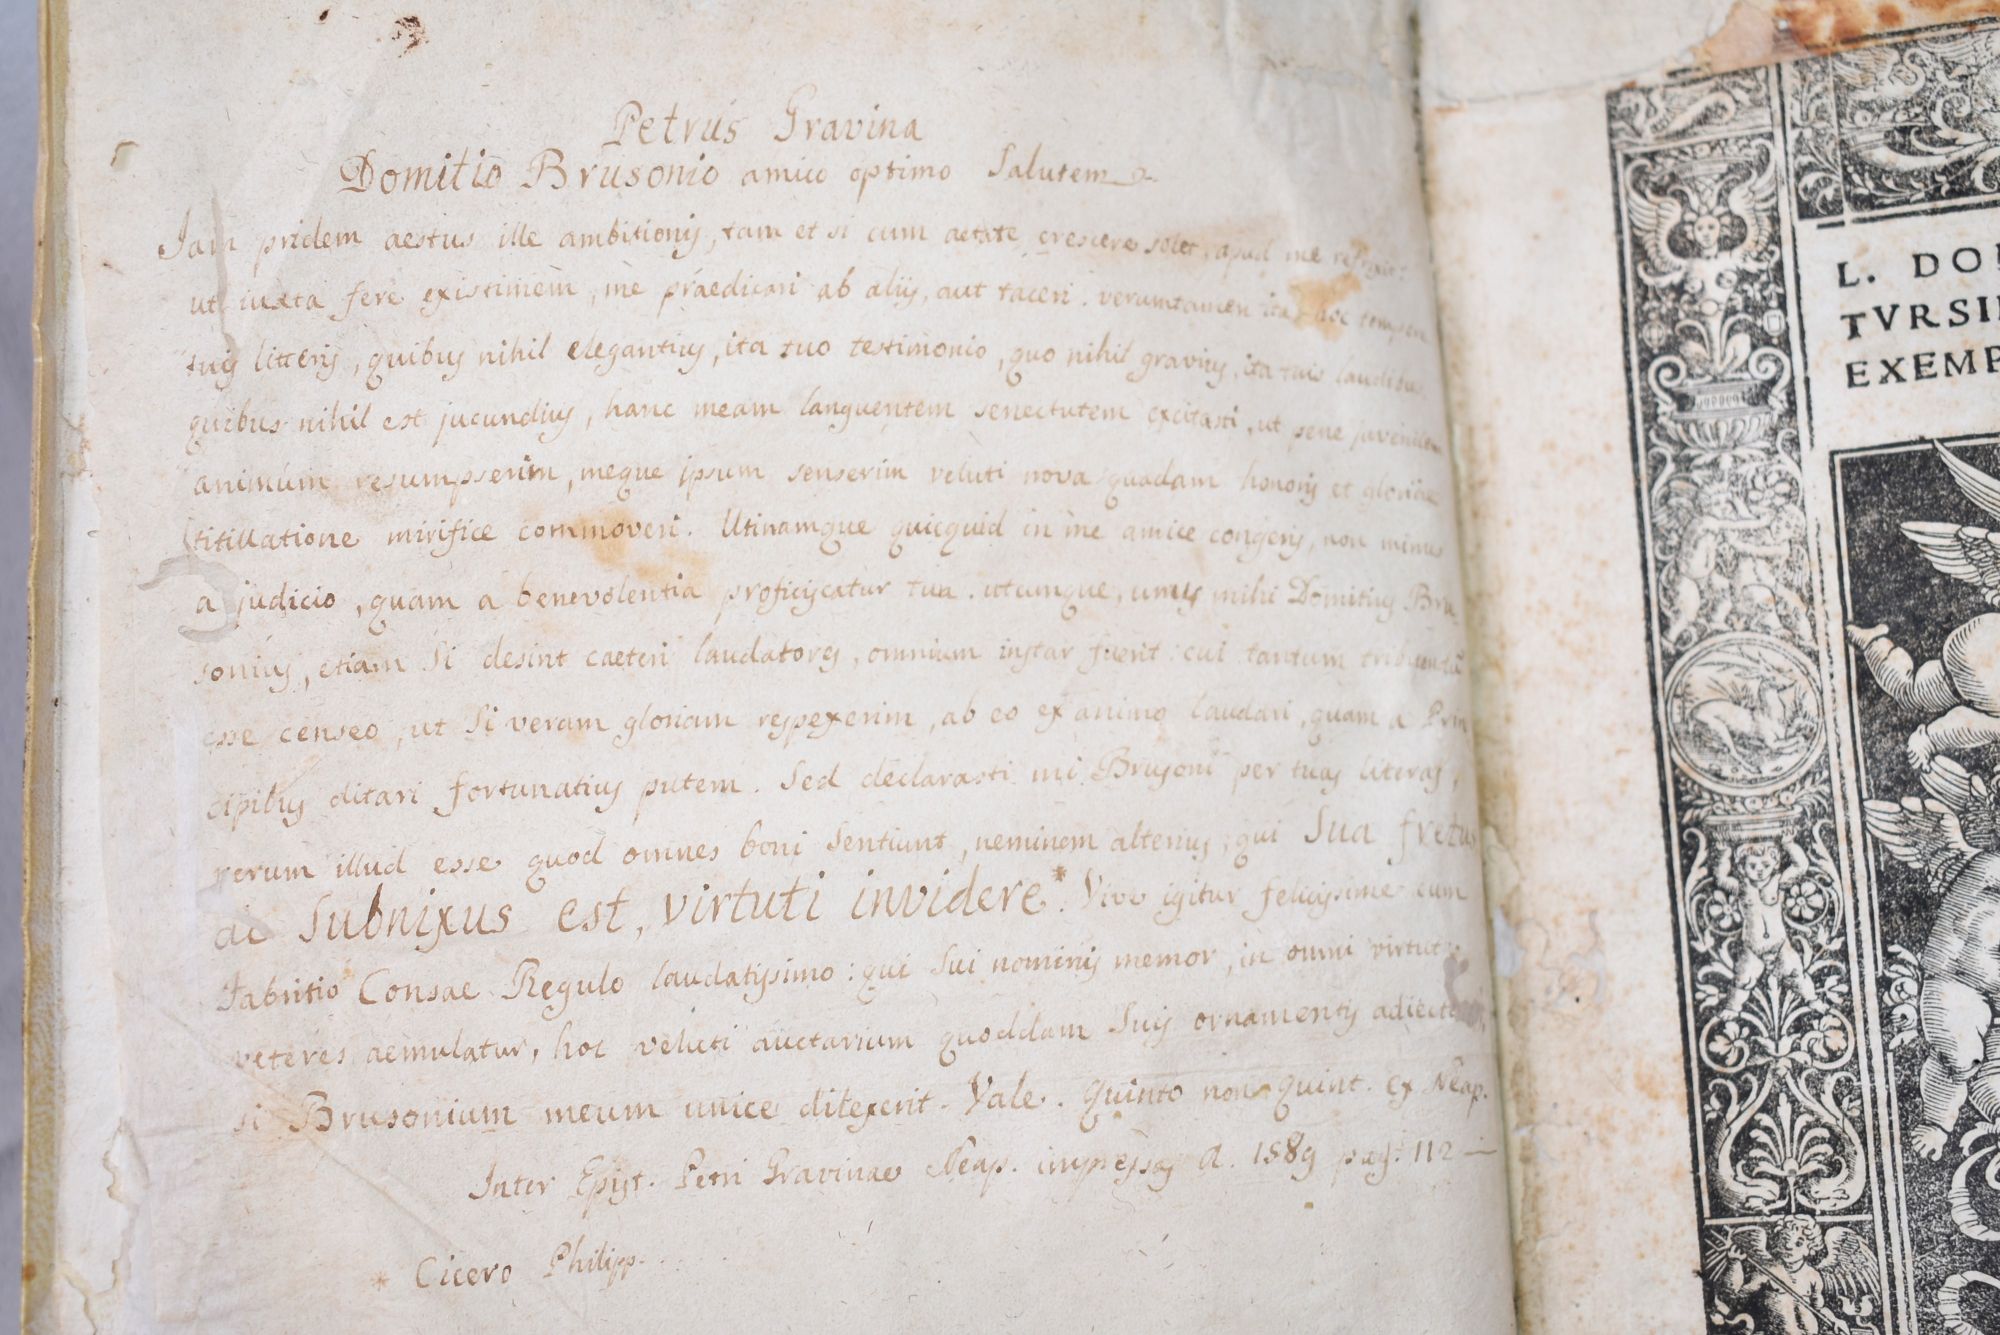 Petrus Gravina
Domitio Brusonio amico optimo Salutem
Jam pridem aestus ille ambitionis, tam et si cum aetate crescere solet, apud me refrixit:
ut iuxta fere existimem, me praedicari ab aliis, aut taceri. verumtamen ita hoc tempore
tuis litteris, quibus nihil elegantius, ita tuo testimonio, quo nihil gravius, ita tuis laudibus
quibus nihil est jucundius, hanc meam languentem senectutem excitasti, ut pene juvenilem
animum resumpserim, meque ipsum senserim veluti nova quadam honoris et gloriae
titillatione mirifice commoveri. Utinamque quicquid in me amice congeris, non minus
a judicio, quam a benevolentia proficiscatur tua. utcumque, unus mihi Domitius Bru
sonius, etiam si desint caeteri laudatores, omnium instar fuerit: cui tantum
esse censeo, ut si veram gloriam respexerim, ab eo ex animo laudari, quam a Prin
cipibus ditari fortunatius putem. Sed declarasti mi Brusoni per tuas literas,
verum illud esse quod omnes boni sentiunt, neminem alterius, qui sua fretus
ac subnixus est, virtuti invidere*. Vive igitur felicissime cum
Fabritio Consae Regulo laudatissimo: qui sui nominis memor, in omni virtute
veteres aemulatur, hoc veluti auctarium quoddam suis ornamentis
si Brusonium meum unice dilexerit. Vale. Quinto non Quint. ex Neap.
Inter Epist. Petri Gravinae Neap. impressas A. 1589 pag. 112
* Cicero Philipp.
L. DO
TVRSI
EXEMP